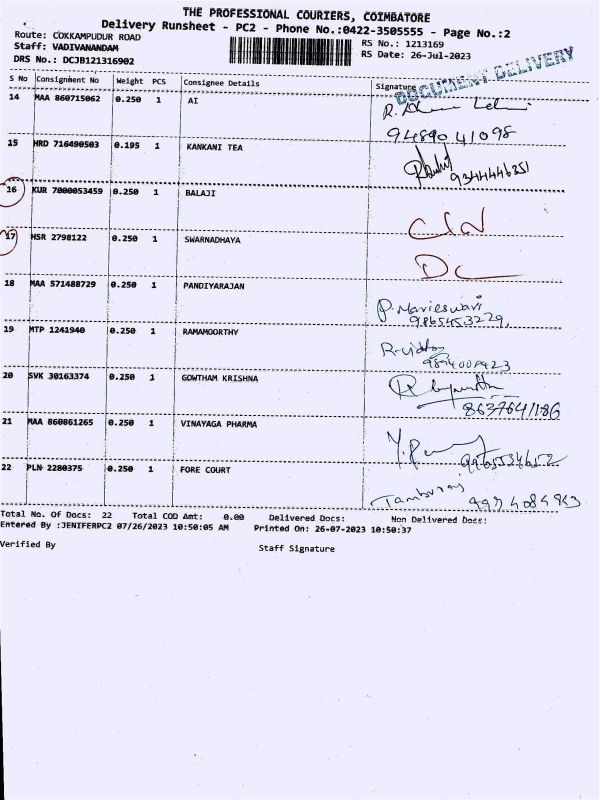 THE PROFESSIONAL COURIERS, COIMBATORE
Delivery Runsheet - PC2 - Phone No.:0422-3505555 - Page No.:2
Route: COKKAMPUDUR ROAD
RS No.: 1213169
Staff: VADIVANANDAM
RS Date: 26-Jul-2023
DRS No.: DCJB121316902
DOCUMENT DELIVERY
S No Consignment No Weight PCS Consignee Details Signature
14 MAA 860715062 0.250 1 AI
94890 41098
15 HRD 716490503 0.195 1 KANKANI TEA
9344446351
16 KUR 7000053459 0.250 1 BALAJI
17 HSR 2798122 0.250 1 SWARNADHAYA
DC
18 MAA 571488729 0.250 1 PANDIYARAJAN
P. Marieswari
9865453229,
19 MTP 1241940 0.250 1 RAMAMOORTHY
20 SVK 30163374 0.250 1 GOWTHAM KRISHNA
8637641186
21 MAA 860861265 0.250 1 VINAYAGA PHARMA
22 PLN 2280375 0.250 1 FORE COURT
Total No. Of Docs: 22 Total COD Amt: 0.00 Delivered Docs: Non Delivered Docs:
Entered By :JENIFERPC2 07/26/2023 10:50:05 AM Printed On: 26-07-2023 10:50:37
Verified By Staff Signature